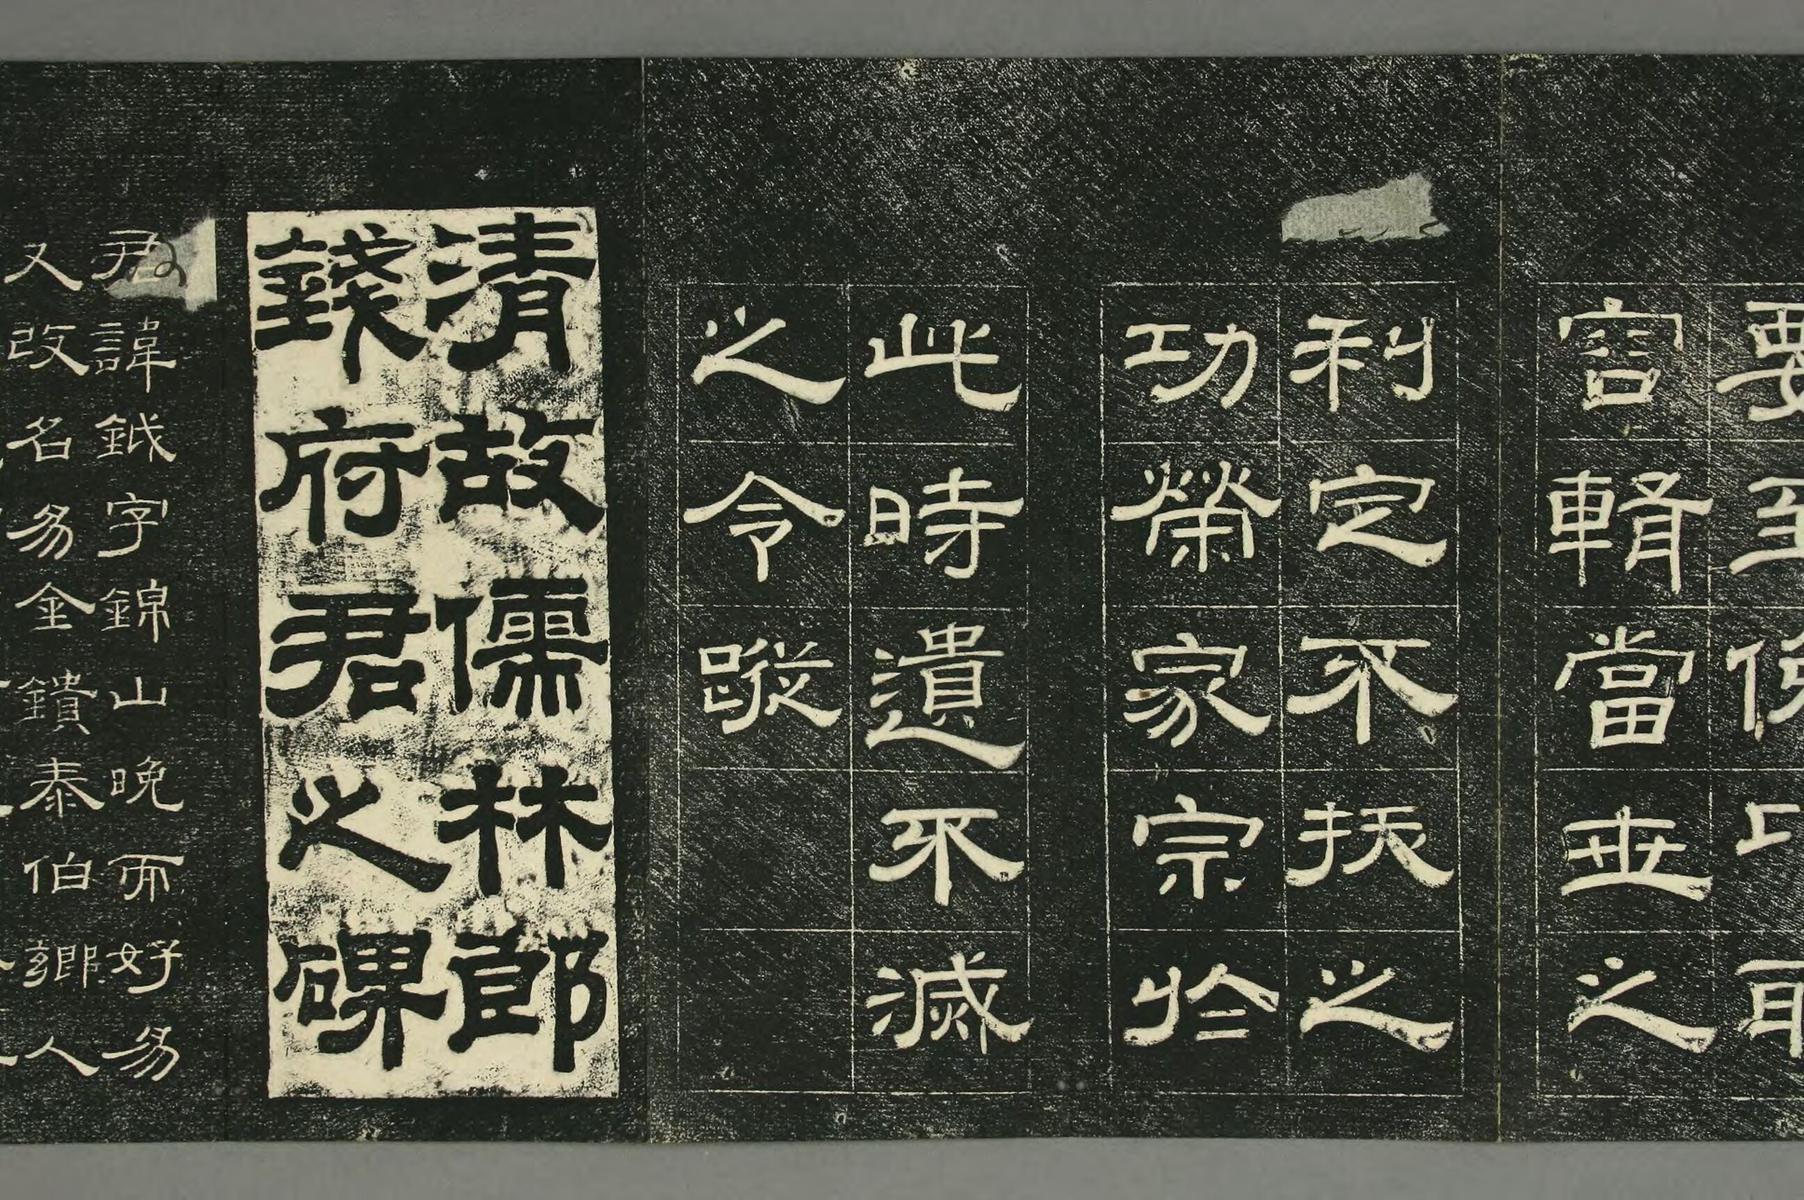 要至
容輶當世之
利定不扶之
功榮家宗於
此時遺不滅
之令蹤
清故儒林郎
錢府君之碑
君諱鉞字錦山晚而好易
又改名易金鐀泰伯鄉人